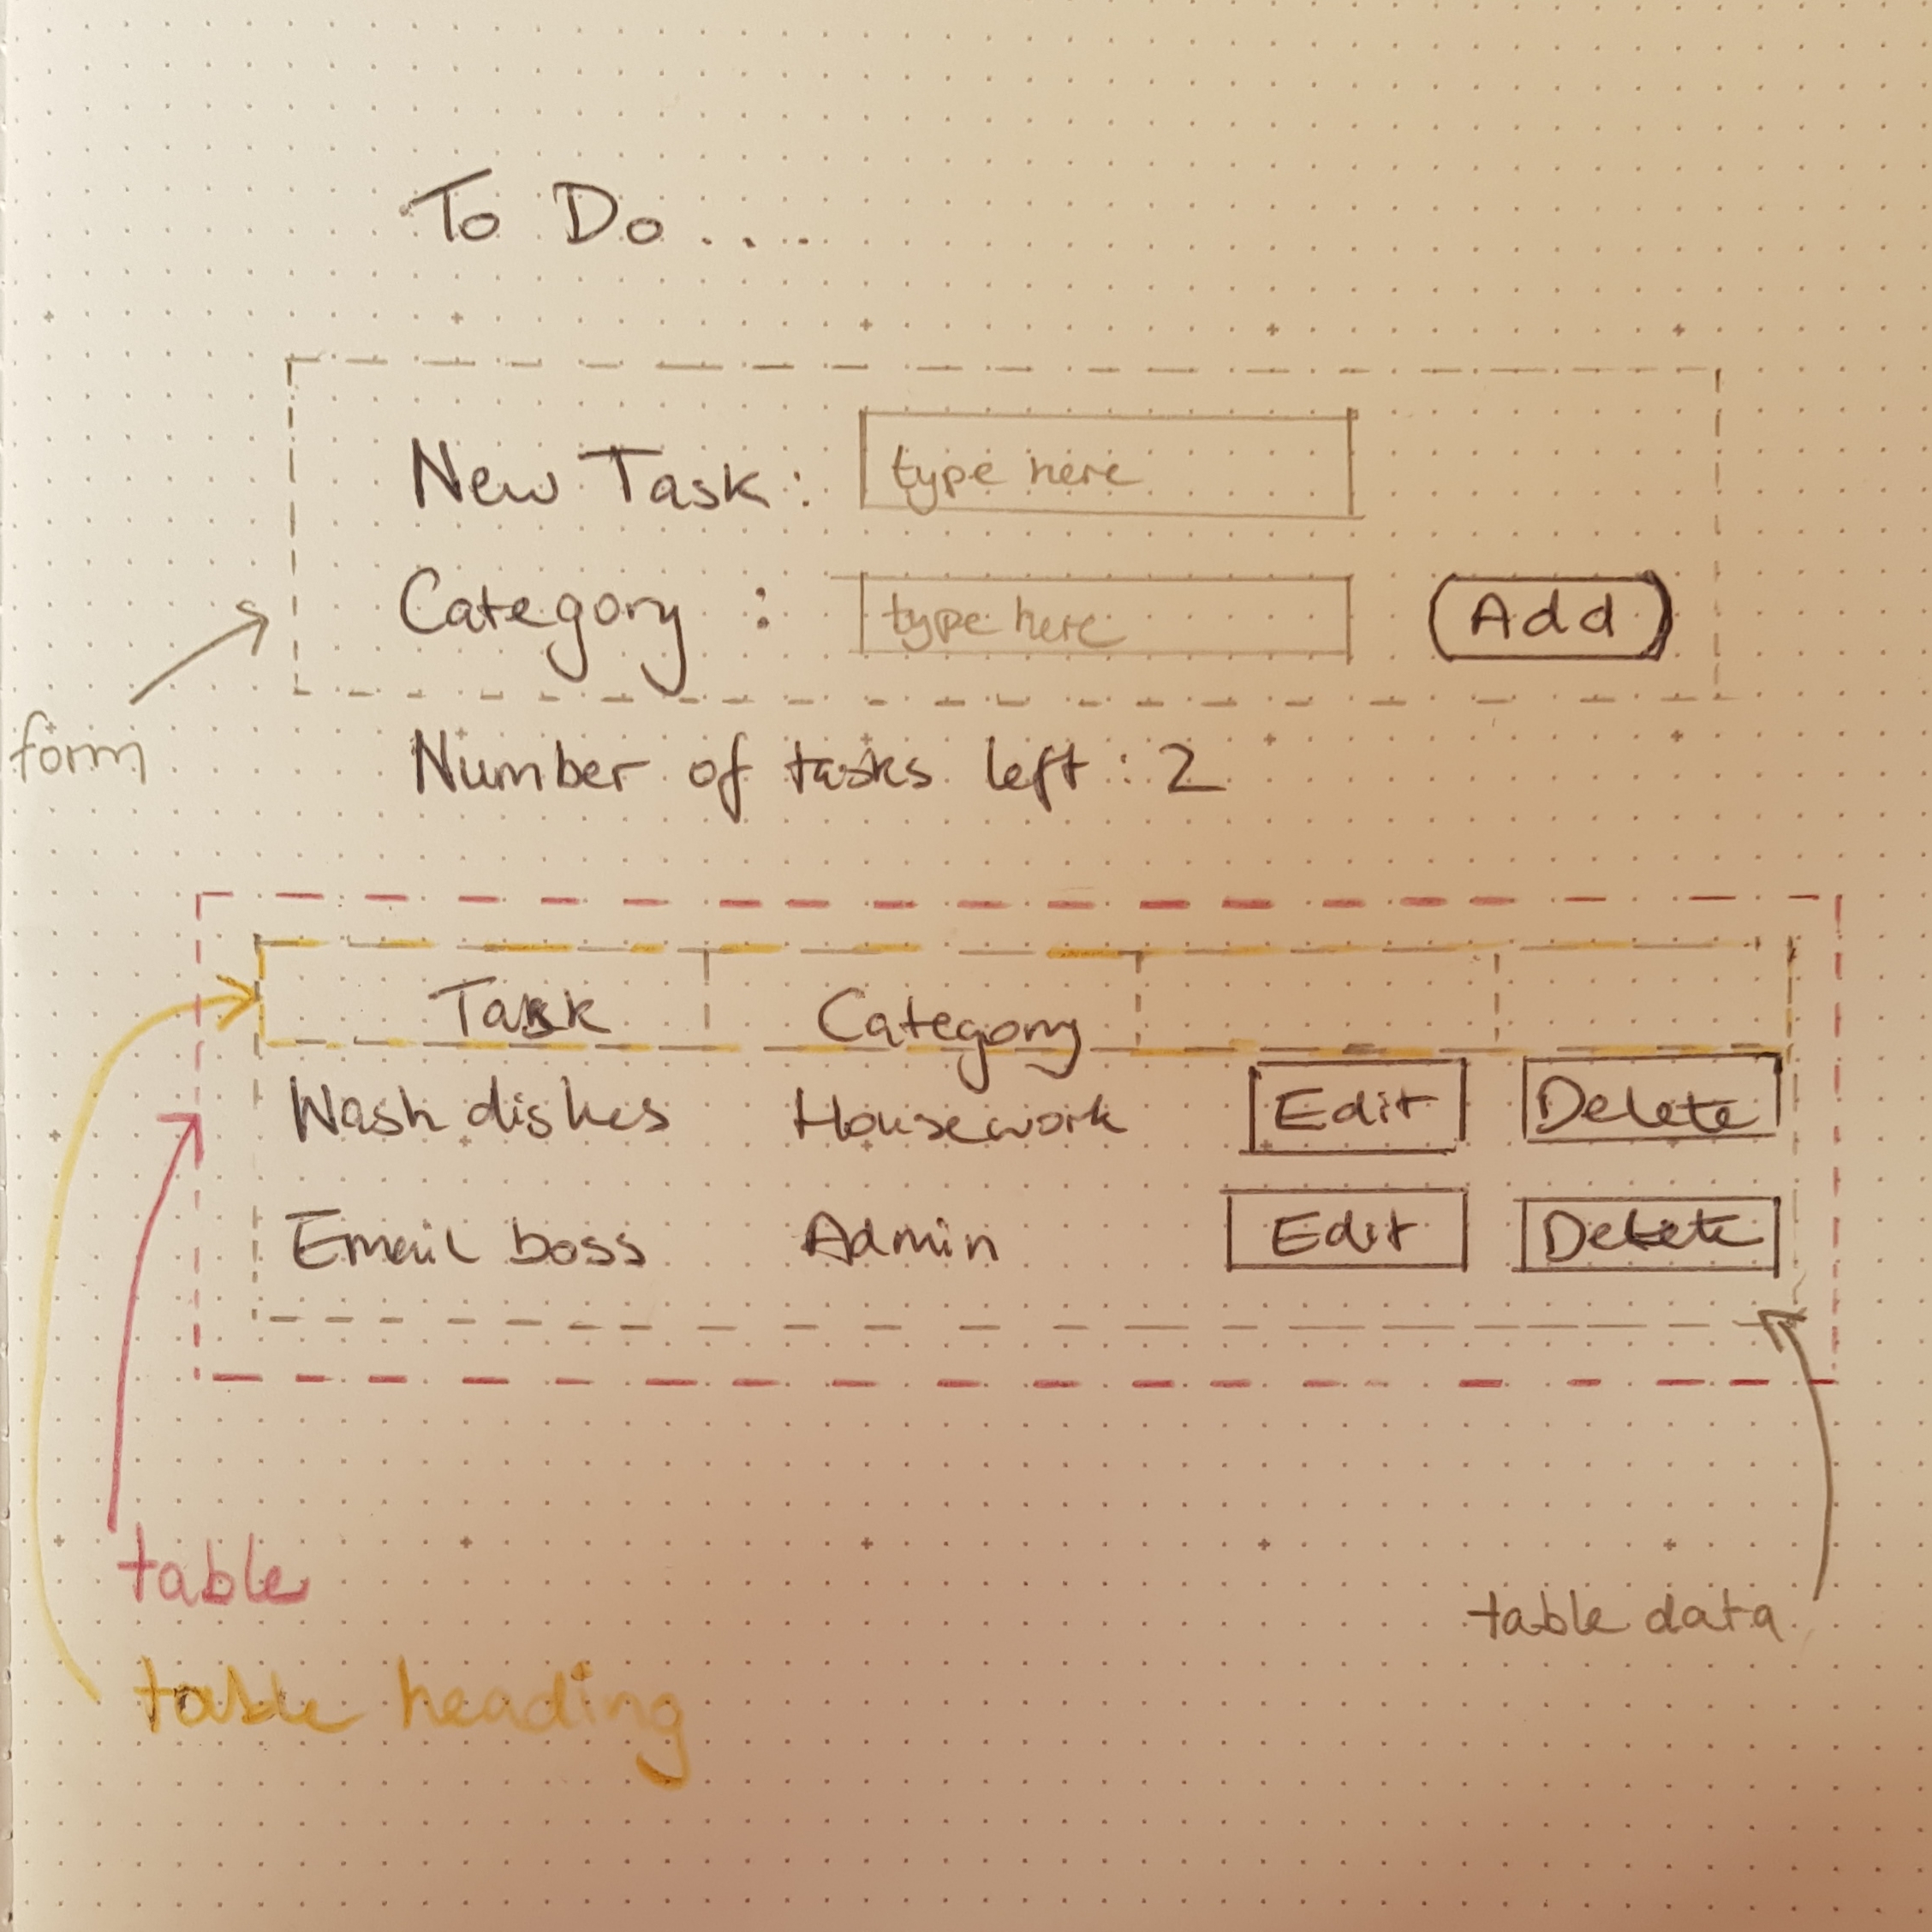 To Do....
New Task: type here
Category : type here Add
form
Number of tasks left : 2
Task Category
Wash dishes Housework Edit Delete
Email boss Admin Edit Delete
table
table data
table heading